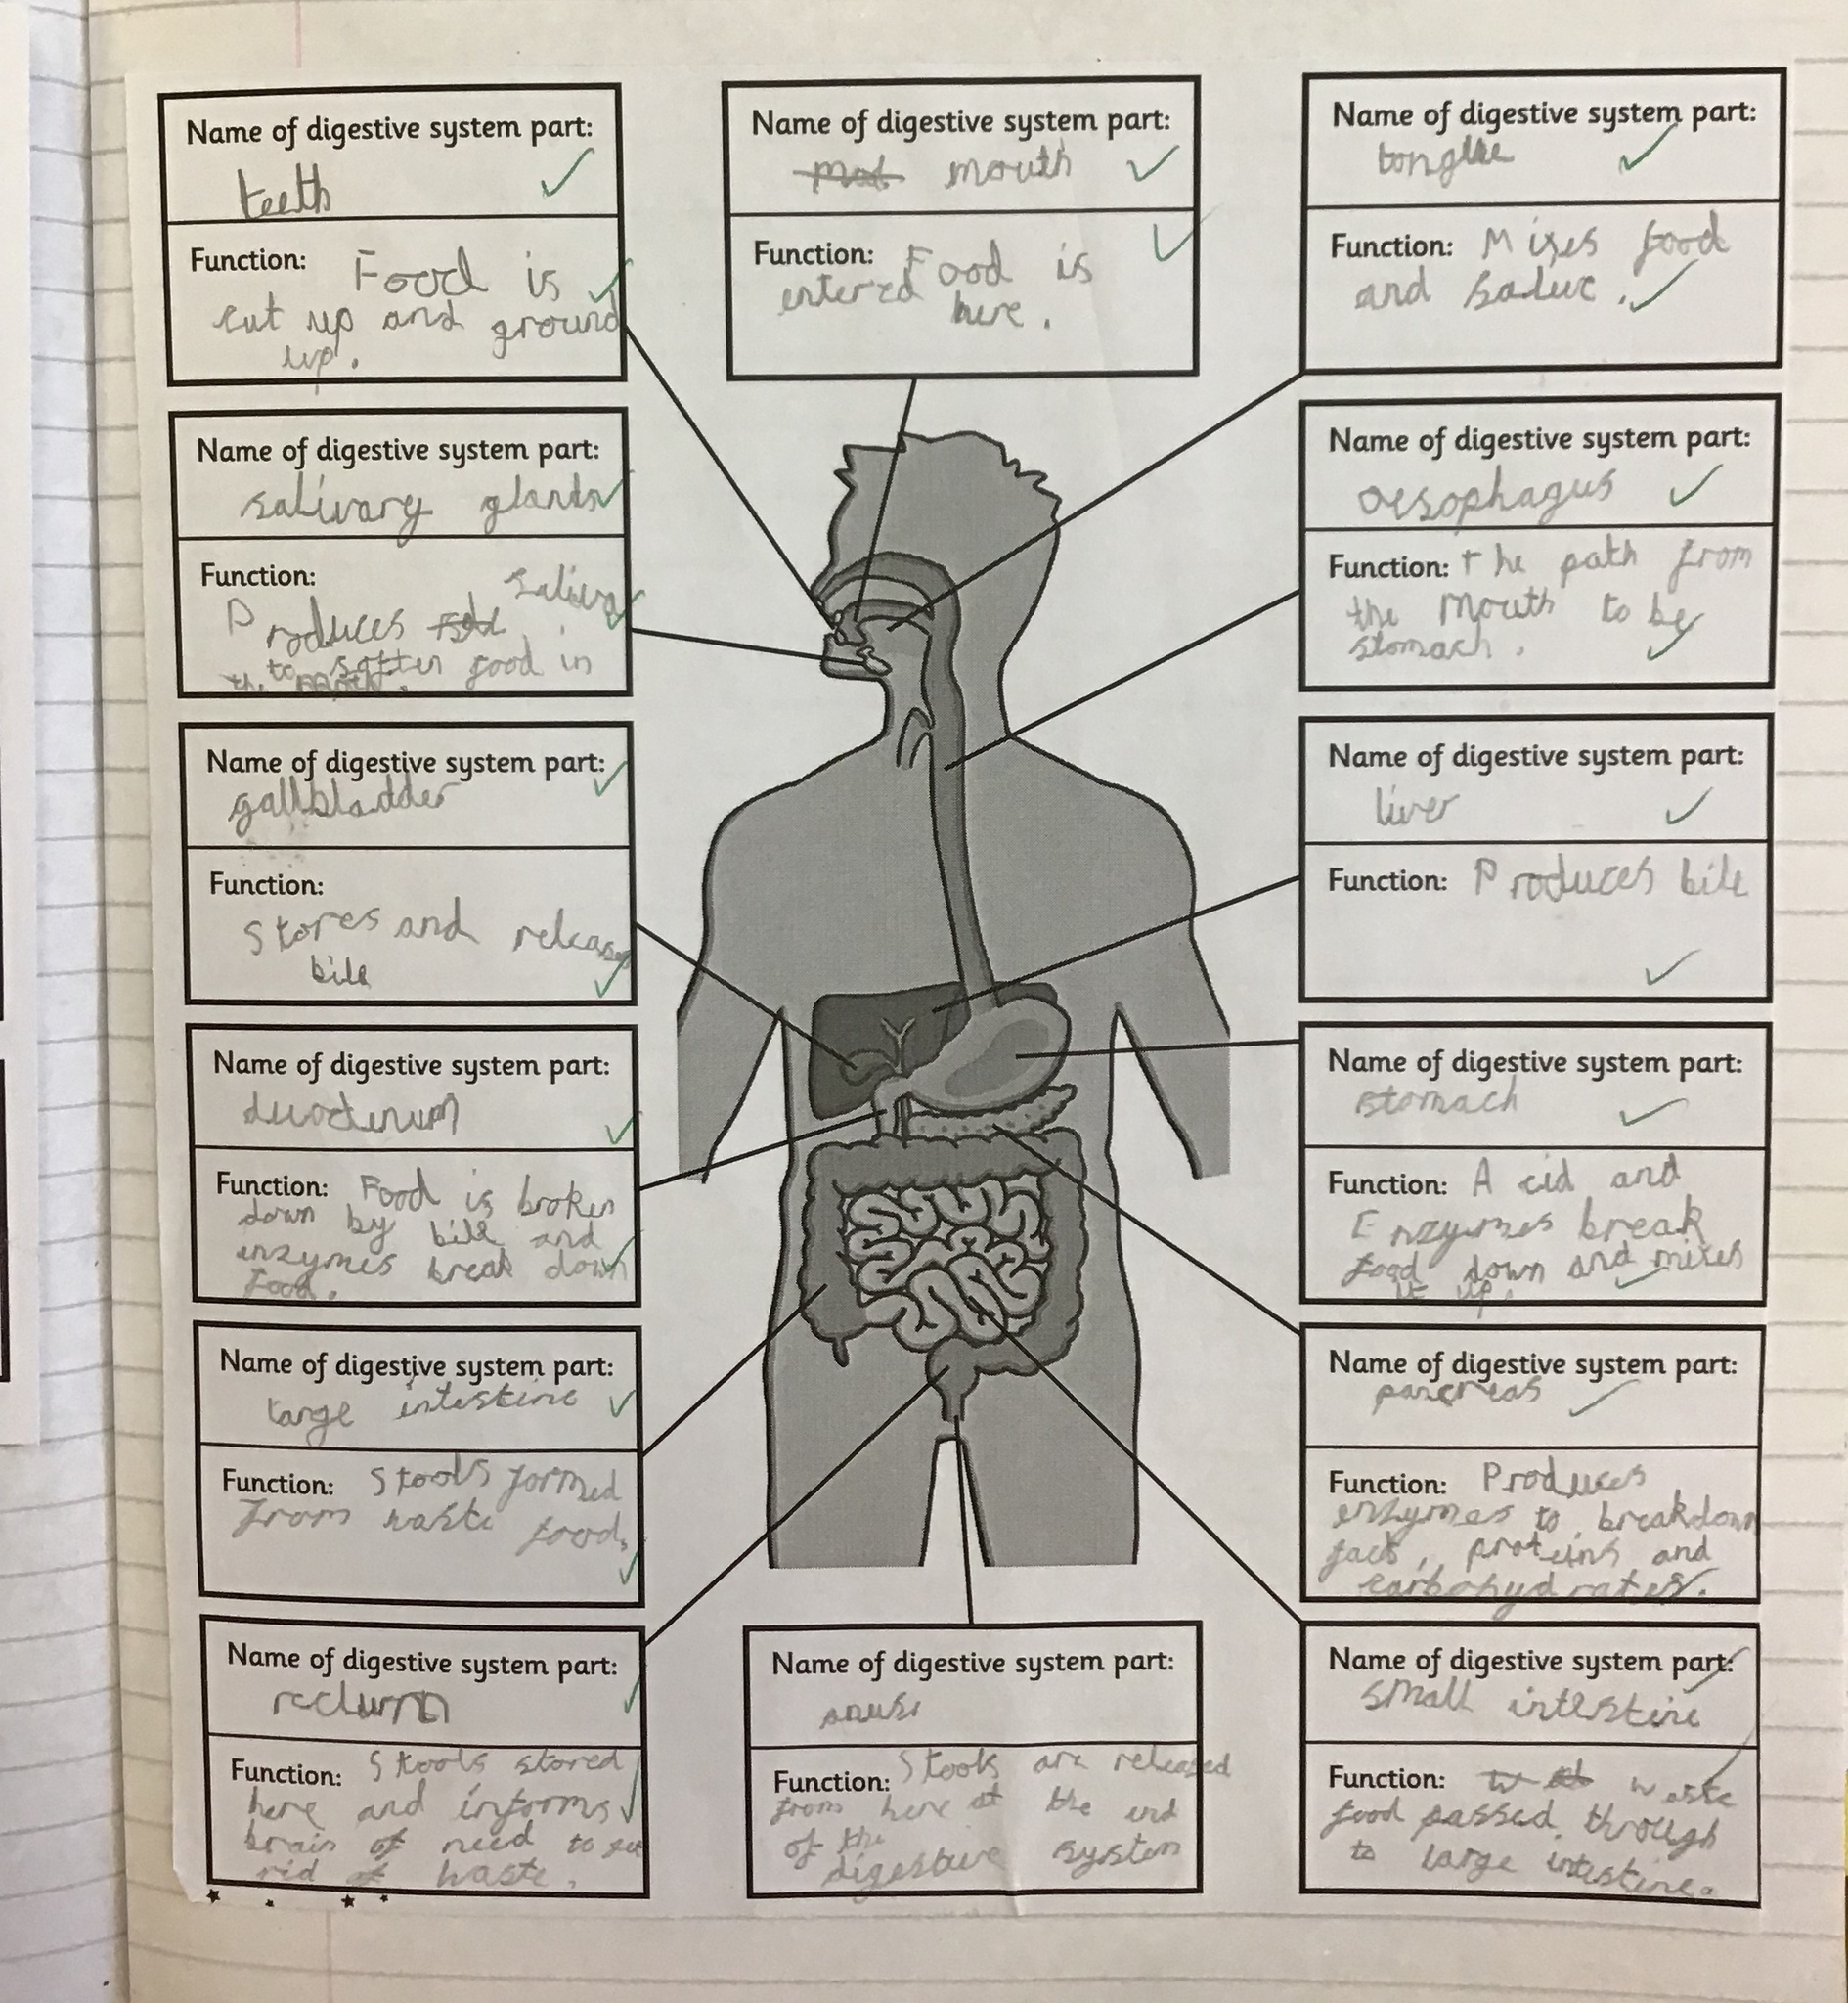 Name of digestive system part:
teeth
Function: Food is
cut up and ground
up.
Name of digestive system part:
mouth
Function: Food is
entered here.
Name of digestive system part:
tongue
Function: Mixes food
and
Name of digestive system part:
salivary glands
Function:
Produces saliva
to soften food in
Name of digestive system part:
oesophagus
Function: the path from
the mouth to
stomach.
Name of digestive system part:
gallbladder
Function:
Stores and releases
bile
Name of digestive system part:
liver
Function: Produces bile
Name of digestive system part:
duodenum
Function: Food is broken
down by bile and
enzymes break down
food.
Name of digestive system part:
stomach
Function: Acid and
Enzymes break
food down and mixes
it up.
Name of digestive system part:
large intestine
Function: Stools formed
from waste food.
Name of digestive system part:
pancreas
Function: Produces
enzymes to breakdown
proteins and
carbohydrates.
Name of digestive system part:
rectum
Function: Stools stored
here and informs
brain of need to get
rid of waste.
Name of digestive system part:
anus
Function: Stools are released
from here at the end
of the
digestive system
Name of digestive system part:
small intestine
Function: waste
food passed through
to large intestine.